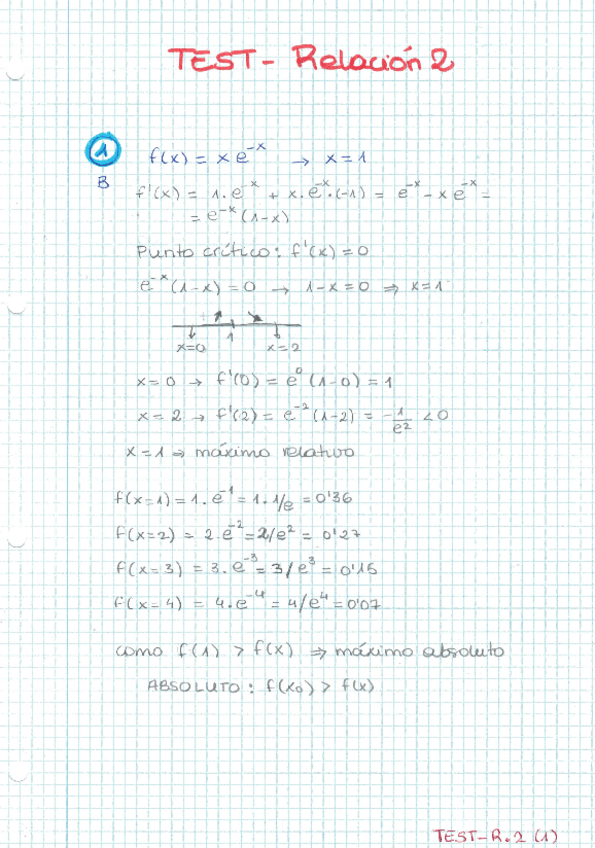 TEST - Relación 2
1
f(x) = x e^-x → x = 1
B
f'(x) = 1. e^-x + x. e^-x . (-1) = e^-x - x e^-x =
= e^-x (1-x)
Punto crítico: f'(x) = 0
e^-x (1-x) = 0 → 1-x = 0 ⇒ x = 1
+
1
x=0 x=2
x = 0 → f'(0) = e^0 (1-0) = 1
x = 2 → f'(2) = e^-2 (1-2) = -1/e^2 < 0
x = 1 ⇒ máximo relativo
f(x=1) = 1. e^-1 = 1. 1/e = 0'36
f(x=2) = 2. e^-2 = 2/e^2 = 0'27
f(x=3) = 3. e^-3 = 3/e^3 = 0'15
f(x=4) = 4. e^-4 = 4/e^4 = 0'07
como f(1) > f(x) ⇒ máximo absoluto
ABSOLUTO : f(x₀) > f(x)
TEST-R.2 (1)